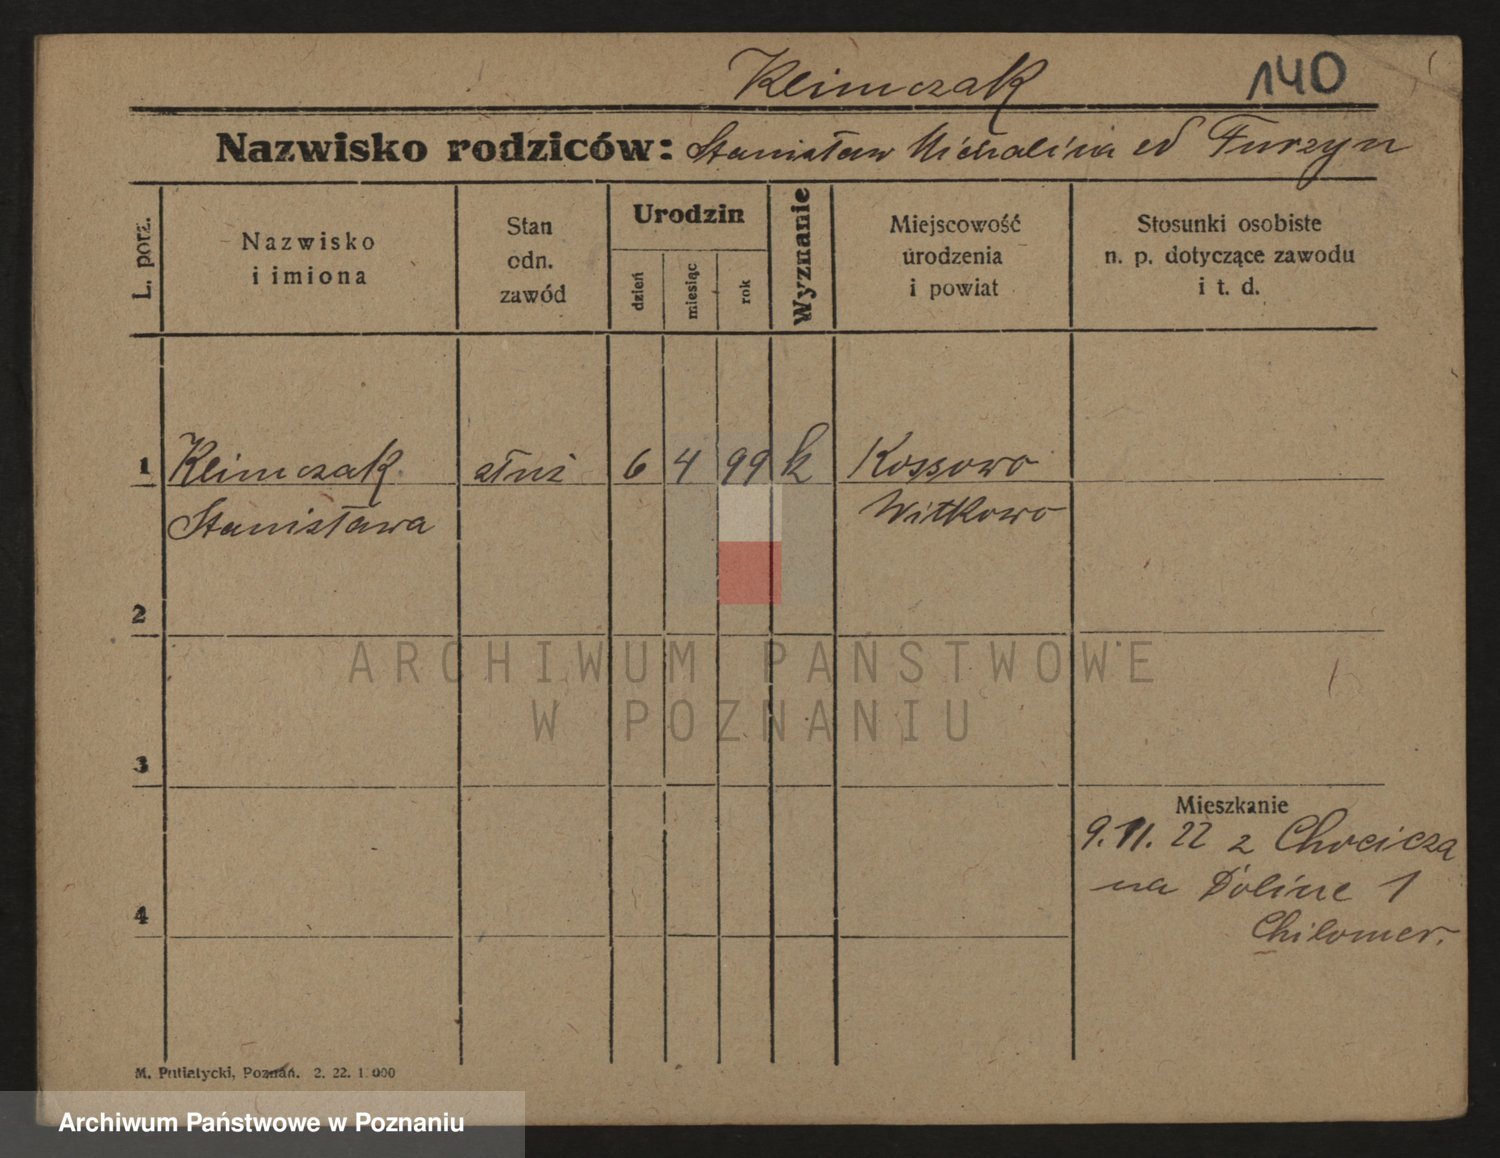 Klimczak 140
Nazwisko rodziców: Stanisław Michalina
L. porz.
Nazwisko
i imiona
Stan
odn.
zawód
Urodzin
dzień
miesiąc
rok
Wyznanie
Miejscowość
urodzenia
i powiat
Stosunki osobiste
n. p. dotyczące zawodu
i t. d.
1 Klimczak służ 6 4 99 k Kossowo
Stanisława Witkowo
2
ARCHIWUM PAŃSTWOWE
W POZNANIU
3
Mieszkanie
9. 11. 22 z Chocicza
na Doline 1
4
M. Putiatycki, Poznań. 2. 22. 1.000
Archiwum Państwowe w Poznaniu